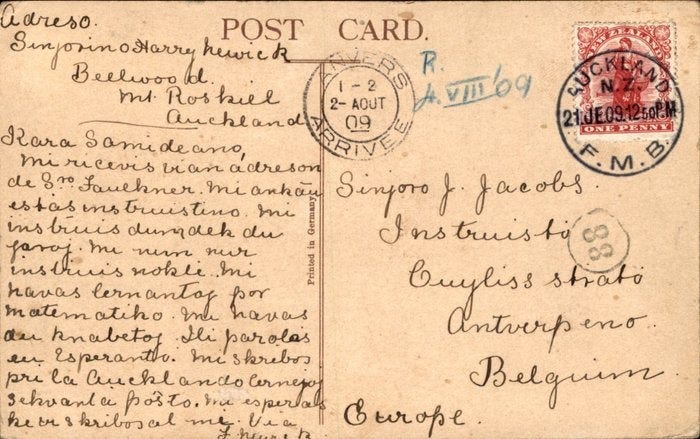 POST CARD.
Adreso.
Sinjorino Harry hewick
Bellwood.
Mt. Roskill
Auckland
Kara Samideano,
Mi ricevis vian adreson
de Sro Faulkner. Mi ankaŭ
estas instruistino. Mi
instruis dum dek du
jaroj. Mi nun nur
instruis nokte. Mi
havas lernantoj por
matematiko. Mi havas
du knabetoj. Ili parolas
en Esperanto. Mi skribos
pri la Aucklando lernejoj
sekvanta poŝto. Mi esperas
ke vi skribos al me. Via
Printed in Germany.
ANVERS
1-2
2- AOUT
09
ARRIVÉE
R.
4. VIII '09
NEW ZEALAND
ONE PENNY
AUCKLAND
N.Z.
21.JE.09.12 50 P.M
F.M.B.
88
Sinjoro J. Jacobs.
Instruisto
Cuyliss strato
Antverpeno.
Belgium.
Europe.